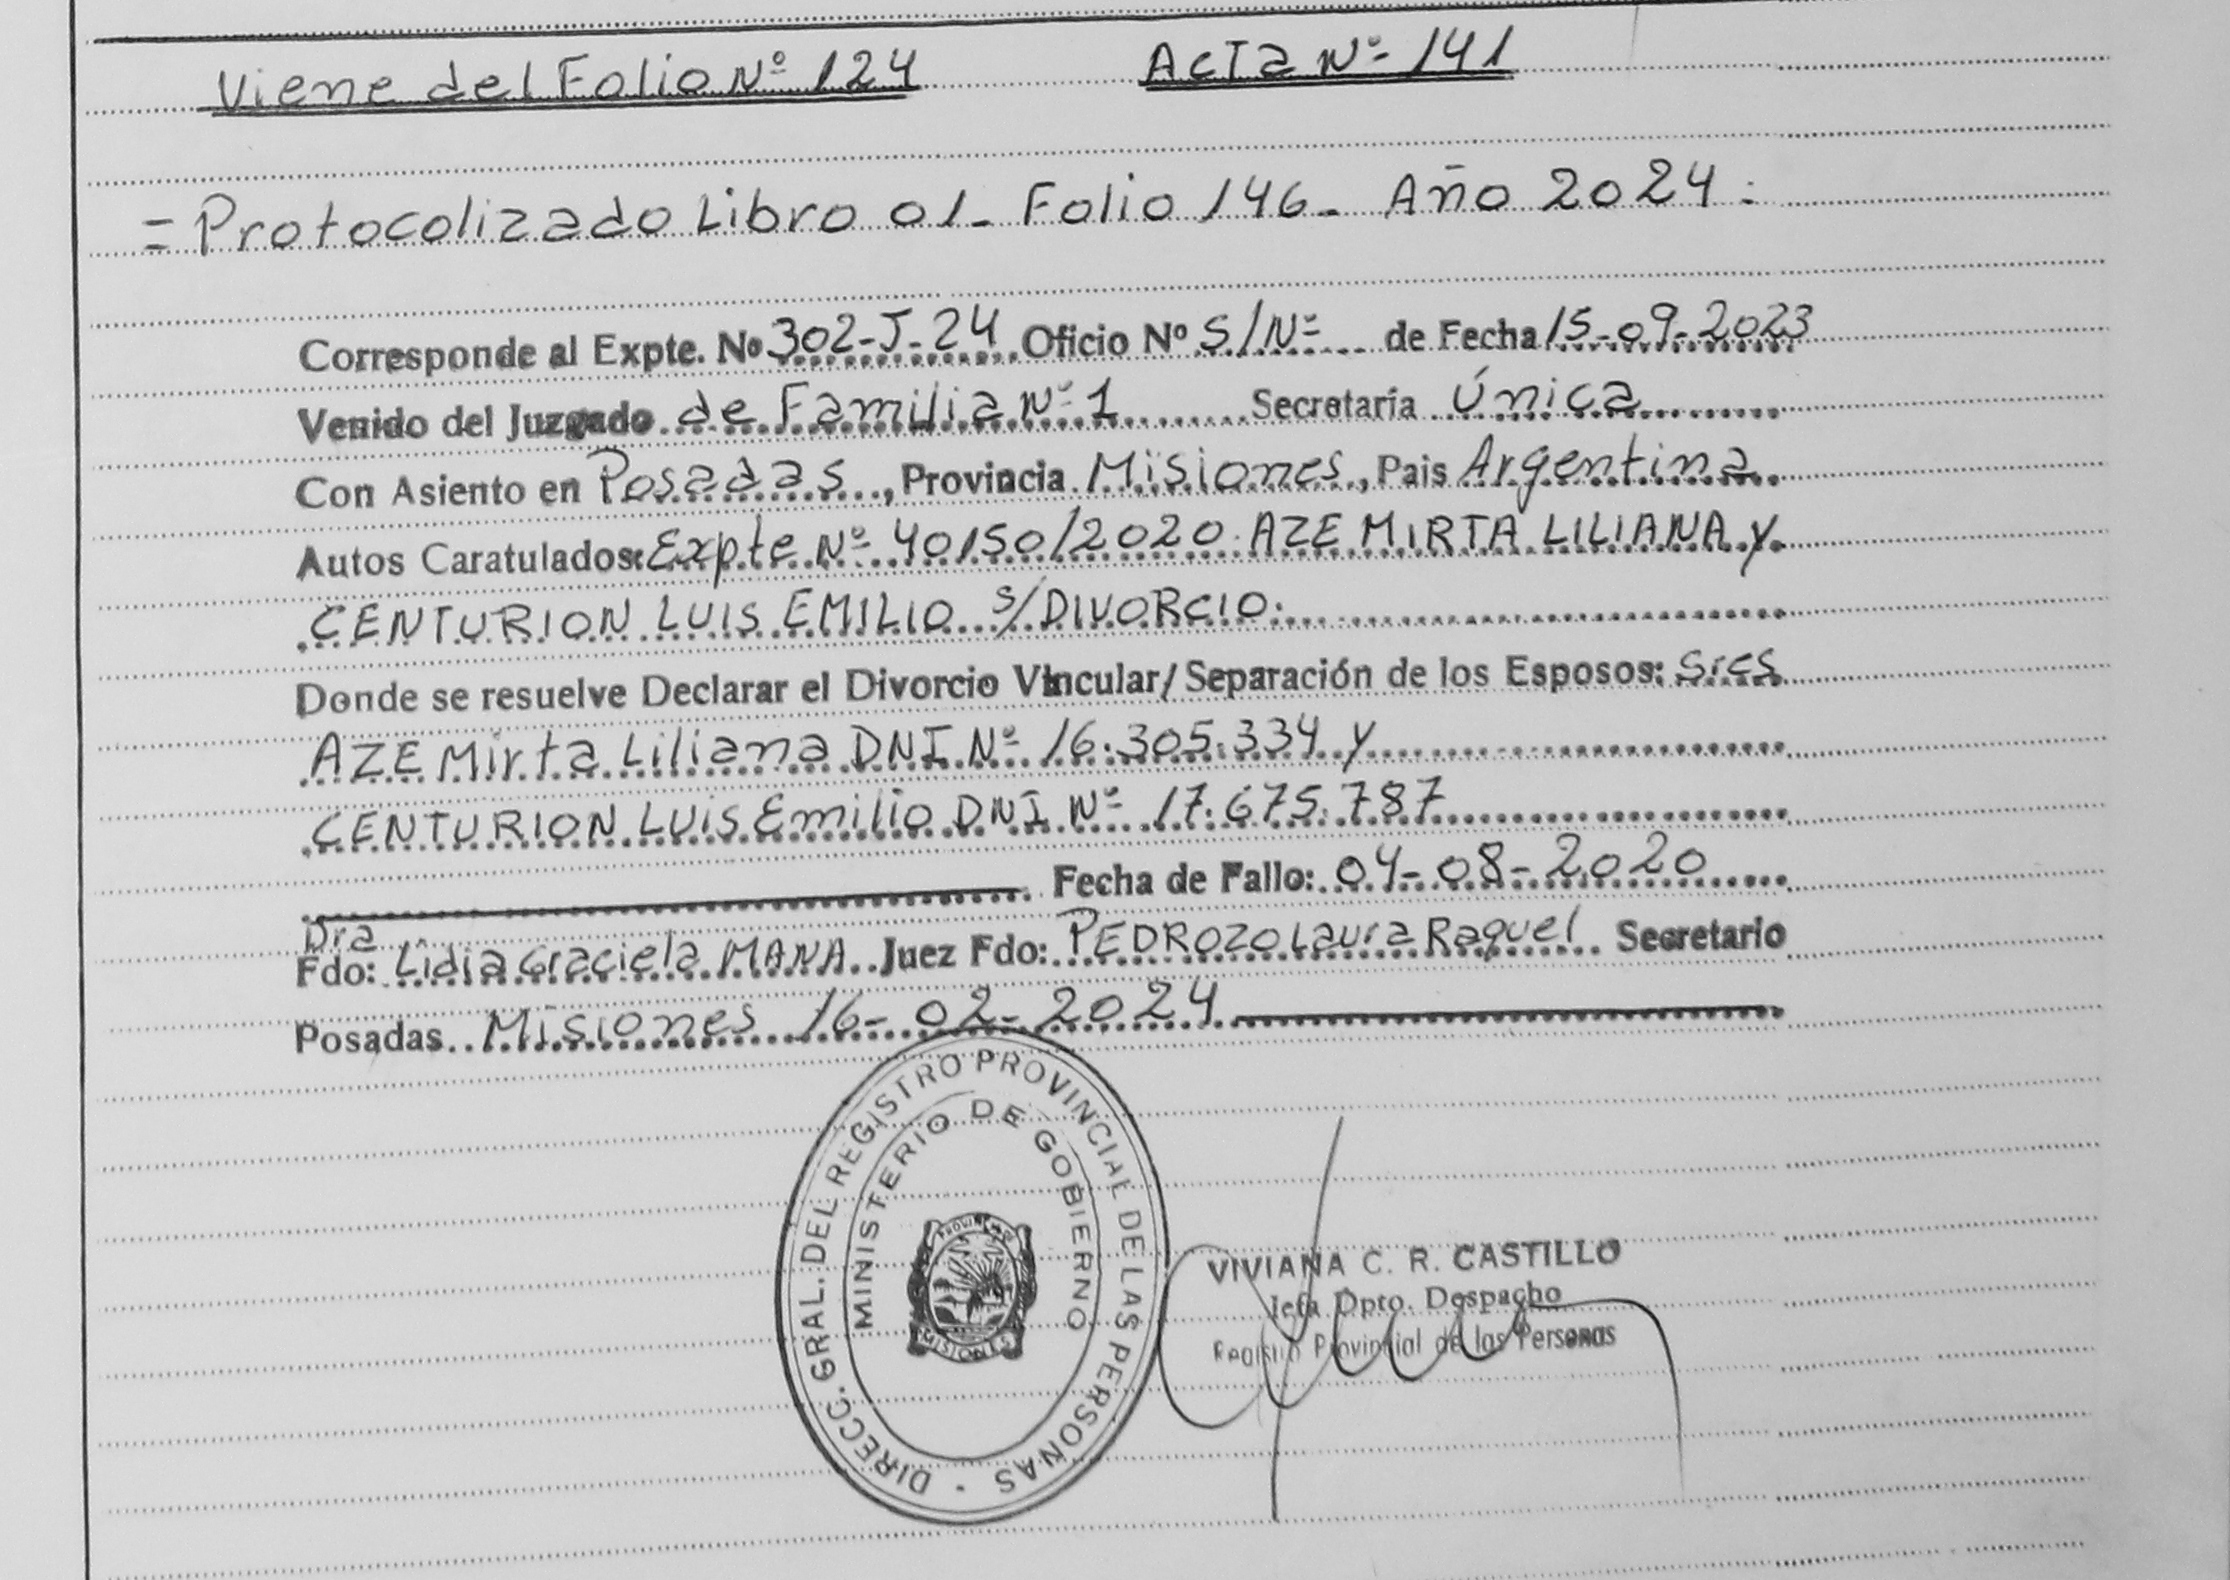 Viene del Folio Nº 124 Acta Nº 141
= Protocolizado Libro 01_ Folio 146_ Año 2024:
Corresponde al Expte. Nº 302-J-24 Oficio Nº S/Nº de Fecha 15-09-2023
Venido del Juzgado de Familia Nº 1 Secretaría Única
Con Asiento en Posadas, Provincia Misiones, Pais Argentina.
Autos Caratulados: Expte Nº 40150/2020 AZE MIRTA LILIANA y
CENTURION LUIS EMILIO s/DIVORCIO.
Donde se resuelve Declarar el Divorcio Vincular/Separación de los Esposos: Sres
AZE Mirta Liliana DNI Nº 16.305.334 y
CENTURION LUIS Emilio DNI Nº 17.675.787
Fecha de Fallo: 04-08-2020
Dra
Fdo: Lidia Graciela MANA Juez Fdo: PEDROZO Laura Raquel Secretario
Posadas Misiones 16-02-2024
DIRECC. GRAL. DEL REGISTRO PROVINCIAL DE LAS PERSONAS
MINISTERIO DE GOBIERNO
PROVINCIA
MISIONES
VIVIANA C. R. CASTILLO
Jefa Dpto. Despacho
Registro Provincial de las Personas